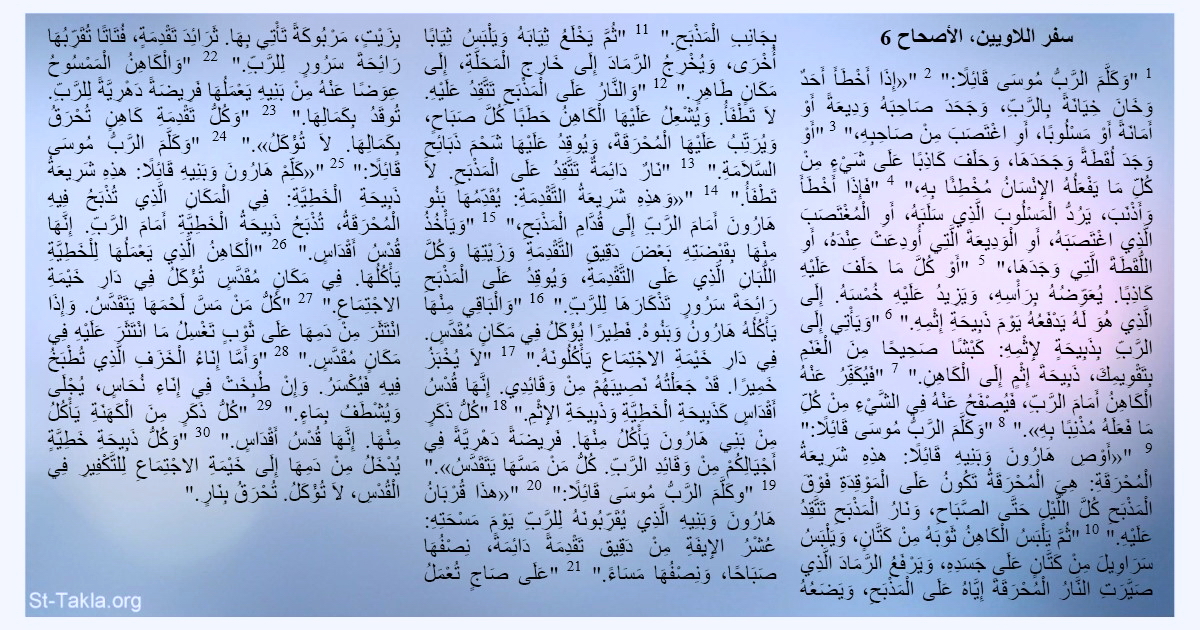 سفر اللاويين، الأصحاح 6
1 "وَكَلَّمَ الرَّبُّ مُوسَى قَائِلًا:" 2 "«إِذَا أَخْطَأَ أَحَدٌ
وَخَانَ خِيَانَةً بِالرَّبِّ، وَجَحَدَ صَاحِبَهُ وَدِيعَةً أَوْ
أَمَانَةً أَوْ مَسْلُوبًا، أَوِ اغْتَصَبَ مِنْ صَاحِبِهِ،" 3 "أَوْ
وَجَدَ لُقَطَةً وَجَحَدَهَا، وَحَلَفَ كَاذِبًا عَلَى شَيْءٍ مِنْ
كُلِّ مَا يَفْعَلُهُ الإِنْسَانُ مُخْطِئًا بِهِ،" 4 "فَإِذَا أَخْطَأَ
وَأَذْنَبَ، يَرُدُّ الْمَسْلُوبَ الَّذِي سَلَبَهُ، أَوِ الْمُغْتَصَبَ
الَّذِي اغْتَصَبَهُ، أَوِ الْوَدِيعَةَ الَّتِي أُودِعَتْ عِنْدَهُ، أَوِ
اللُّقَطَةَ الَّتِي وَجَدَهَا،" 5 "أَوْ كُلَّ مَا حَلَفَ عَلَيْهِ
كَاذِبًا. يُعَوِّضُهُ بِرَأْسِهِ، وَيَزِيدُ عَلَيْهِ خُمْسَهُ. إِلَى
الَّذِي هُوَ لَهُ يَدْفَعُهُ يَوْمَ ذَبِيحَةِ إِثْمِهِ." 6 "وَيَأْتِي إِلَى
الرَّبِّ بِذَبِيحَةٍ لإِثْمِهِ: كَبْشًا صَحِيحًا مِنَ الْغَنَمِ
بِتَقْوِيمِكَ، ذَبِيحَةَ إِثْمٍ إِلَى الْكَاهِنِ." 7 "فَيُكَفِّرُ عَنْهُ
الْكَاهِنُ أَمَامَ الرَّبِّ، فَيُصْفَحُ عَنْهُ فِي الشَّيْءِ مِنْ كُلِّ
مَا فَعَلَهُ مُذْنِبًا بِهِ»." 8 "وَكَلَّمَ الرَّبُّ مُوسَى قَائِلًا:"
9 "«أَوْصِ هَارُونَ وَبَنِيهِ قَائِلًا: هذِهِ شَرِيعَةُ
الْمُحْرَقَةِ: هِيَ الْمُحْرَقَةُ تَكُونُ عَلَى الْمَوْقِدَةِ فَوْقَ
الْمَذْبَحِ كُلَّ اللَّيْلِ حَتَّى الصَّبَاحِ، وَنَارُ الْمَذْبَحِ تَتَّقِدُ
عَلَيْهِ." 10 "ثُمَّ يَلْبَسُ الْكَاهِنُ ثَوْبَهُ مِنْ كَتَّانٍ، وَيَلْبَسُ
سَرَاوِيلَ مِنْ كَتَّانٍ عَلَى جَسَدِهِ، وَيَرْفَعُ الرَّمَادَ الَّذِي
صَيَّرَتِ النَّارُ الْمُحْرَقَةَ إِيَّاهُ عَلَى الْمَذْبَحِ، وَيَضَعُهُ
بِجَانِبِ الْمَذْبَحِ." 11 "ثُمَّ يَخْلَعُ ثِيَابَهُ وَيَلْبَسُ ثِيَابًا
أُخْرَى، وَيُخْرِجُ الرَّمَادَ إِلَى خَارِجِ الْمَحَلَّةِ، إِلَى
مَكَانٍ طَاهِرٍ." 12 "وَالنَّارُ عَلَى الْمَذْبَحِ تَتَّقِدُ عَلَيْهِ.
لاَ تَطْفَأُ. وَيُشْعِلُ عَلَيْهَا الْكَاهِنُ حَطَبًا كُلَّ صَبَاحٍ،
وَيُرَتِّبُ عَلَيْهَا الْمُحْرَقَةَ، وَيُوقِدُ عَلَيْهَا شَحْمَ ذَبَائِحِ
السَّلاَمَةِ." 13 "نَارٌ دَائِمَةٌ تَتَّقِدُ عَلَى الْمَذْبَحِ. لاَ
تَطْفَأُ." 14 "«وَهذِهِ شَرِيعَةُ التَّقْدِمَةِ: يُقَدِّمُهَا بَنُو
هَارُونَ أَمَامَ الرَّبِّ إِلَى قُدَّامِ الْمَذْبَحِ،" 15 "وَيَأْخُذُ
مِنْهَا بِقَبْضَتِهِ بَعْضَ دَقِيقِ التَّقْدِمَةِ وَزَيْتِهَا وَكُلَّ
اللُّبَانِ الَّذِي عَلَى التَّقْدِمَةِ، وَيُوقِدُ عَلَى الْمَذْبَحِ
رَائِحَةَ سَرُورٍ تَذْكَارَهَا لِلرَّبِّ." 16 "وَالْبَاقِي مِنْهَا
يَأْكُلُهُ هَارُونُ وَبَنُوهُ. فَطِيرًا يُؤْكَلُ فِي مَكَانٍ مُقَدَّسٍ.
فِي دَارِ خَيْمَةِ الاجْتِمَاعِ يَأْكُلُونَهُ." 17 "لاَ يُخْبَزُ
خَمِيرًا. قَدْ جَعَلْتُهُ نَصِيبَهُمْ مِنْ وَقَائِدِي. إِنَّهَا قُدْسُ
أَقْدَاسٍ كَذَبِيحَةِ الْخَطِيَّةِ وَذَبِيحَةِ الإِثْمِ." 18 "كُلُّ ذَكَرٍ
مِنْ بَنِي هَارُونَ يَأْكُلُ مِنْهَا. فَرِيضَةً دَهْرِيَّةً فِي
أَجْيَالِكُمْ مِنْ وَقَائِدِ الرَّبِّ. كُلُّ مَنْ مَسَّهَا يَتَقَدَّسُ»."
19 "وَكَلَّمَ الرَّبُّ مُوسَى قَائِلًا:" 20 "«هذَا قُرْبَانُ
هَارُونَ وَبَنِيهِ الَّذِي يُقَرِّبُونَهُ لِلرَّبِّ يَوْمَ مَسْحَتِهِ:
عُشْرُ الإِيفَةِ مِنْ دَقِيق تَقْدِمَةً دَائِمَةً، نِصْفُهَا
صَبَاحًا، وَنِصْفُهَا مَسَاءً." 21 "عَلَى صَاجٍ تُعْمَلُ
بِزَيْتٍ، مَرْبُوكَةً تَأْتِي بِهَا. ثَرَائِدَ تَقْدِمَةٍ، فُتَاتًا تُقَرِّبُهَا
رَائِحَةَ سَرُورٍ لِلرَّبِّ." 22 "وَالْكَاهِنُ الْمَمْسُوحُ
عِوَضًا عَنْهُ مِنْ بَنِيهِ يَعْمَلُهَا فَرِيضَةً دَهْرِيَّةً لِلرَّبِّ.
تُوقَدُ بِكَمَالِهَا." 23 "وَكُلُّ تَقْدِمَةِ كَاهِنٍ تُحْرَقُ
بِكَمَالِهَا. لاَ تُؤْكَلُ»." 24 "وَكَلَّمَ الرَّبُّ مُوسَى
قَائِلًا:" 25 "«كَلِّمْ هَارُونَ وَبَنِيهِ قَائِلًا: هذِهِ شَرِيعَةُ
ذَبِيحَةِ الْخَطِيَّةِ: فِي الْمَكَانِ الَّذِي تُذْبَحُ فِيهِ
الْمُحْرَقَةُ، تُذْبَحُ ذَبِيحَةُ الْخَطِيَّةِ أَمَامَ الرَّبِّ. إِنَّهَا
قُدْسُ أَقْدَاسٍ." 26 "الْكَاهِنُ الَّذِي يَعْمَلُهَا لِلْخَطِيَّةِ
يَأْكُلُهَا. فِي مَكَانٍ مُقَدَّسٍ تُؤْكَلُ فِي دَارِ خَيْمَةِ
الاجْتِمَاعِ." 27 "كُلُّ مَنْ مَسَّ لَحْمَهَا يَتَقَدَّسُ. وَإِذَا
انْتَثَرَ مِنْ دَمِهَا عَلَى ثَوْبٍ تَغْسِلُ مَا انْتَثَرَ عَلَيْهِ فِي
مَكَانٍ مُقَدَّسٍ." 28 "وَأَمَّا إِنَاءُ الْخَزَفِ الَّذِي تُطْبَخُ
فِيهِ فَيُكْسَرُ. وَإِنْ طُبِخَتْ فِي إِنَاءِ نُحَاسٍ، يُجْلَى
وَيُشْطَفُ بِمَاءٍ." 29 "كُلُّ ذَكَرٍ مِنَ الْكَهَنَةِ يَأْكُلُ
مِنْهَا. إِنَّهَا قُدْسُ أَقْدَاسٍ." 30 "وَكُلُّ ذَبِيحَةِ خَطِيَّةٍ
يُدْخَلُ مِنْ دَمِهَا إِلَى خَيْمَةِ الاجْتِمَاعِ لِلتَّكْفِيرِ فِي
الْقُدْسِ، لاَ تُؤْكَلُ. تُحْرَقُ بِنَارٍ."
St-Takla.org